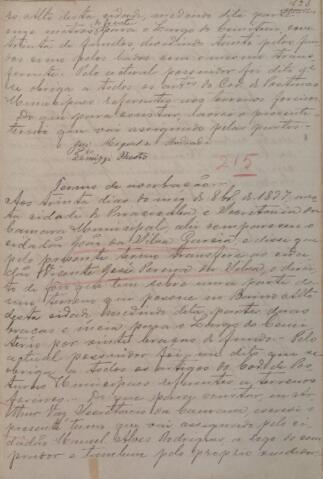 ro Alto desta cidade, medindo dita parte
onze metros para o Largo do Cemiterio, com
trinta de fundos, dividindo tanto pelos fun
dos como pelos lados com o mesmo trans
ferente. Pelo actual possuidor foi dito q' e
se obriga a todos os art.os do Cod. de Posturas
Municipaes referentes aos terrenos foreiros.
Do que para constar, lavrei o presente
termo que vai assignado pelas partes.
José Miguel de Andrade
215
Termo de averbação
Aos trinta dias do mez de 8br.o de 1897, nes
ta cidade de Piracicaba, e Secretaria da
Camara Municipal, ahi compareceu o
cidadão João da Silva Garcia, e disse que
pelo presente termo transfere ao cida
dão Vicente José Pereira da Silva, o direi
to de foro que tem sobre uma parte de
um terreno que possue no Bairro Alto
desta cidade medindo dita parte, duas
braças e meia, para o Largo do Cemi
terio por vinte braças de fundo. Pelo
actual possuidor foi-me dito que se
obriga a todos os artigos do Cod. de Pos
turas Municipaes referentes a terrenos
foreiros. Do que para constar, eu Ar
thur Vaz, Secretario da Camara, escrevi o
presente termo, que vai assignado pelo ci
dadão Manuel Alves Rodrigues, a rogo do com
prador e tambem pelo proprio vendedor.